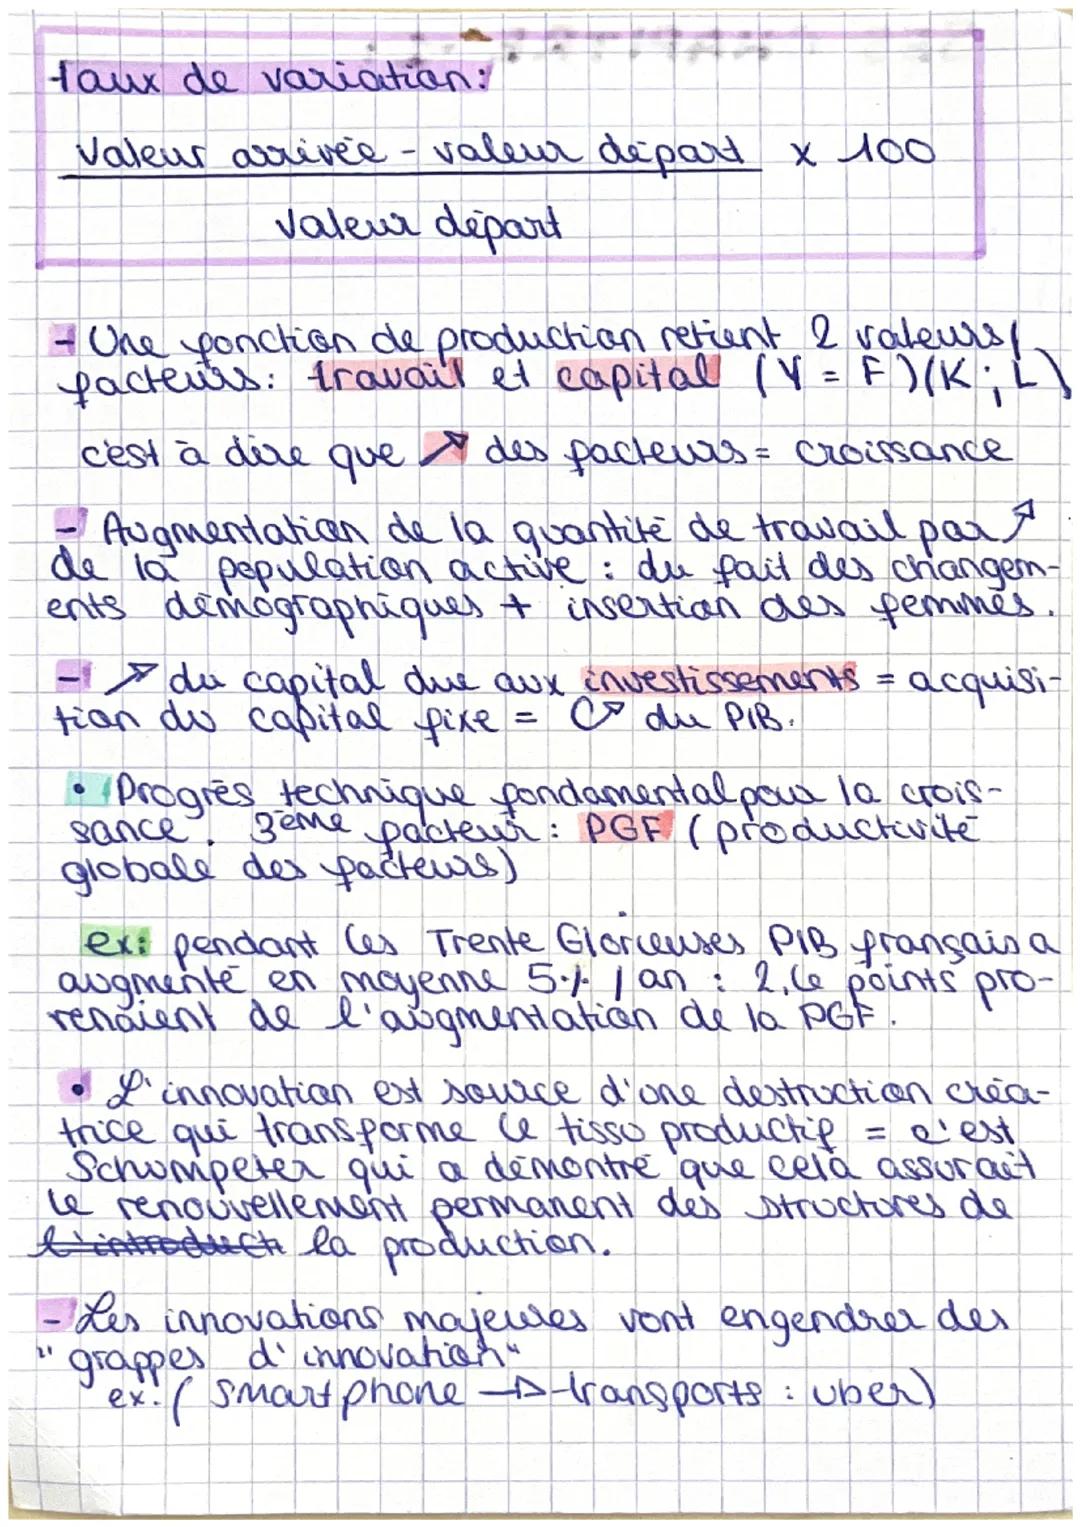 Taux de variation:
Valeur arrivée - valeur départ x 100
Valeur départ
- Une fonction de production retient 2 valeurs/
facteurs: travail et capital (Y = F)(K ; L)
c'est à dire que ↗ des facteurs = croissance
- Augmentation de la quantité de travail par ↗
de la population active : du fait des changem-
ents démographiques + insertion des femmes.
- ↗ du capital due aux investissements = acquisi-
tion du capital fixe = ↗ du PIB.
• Progrès technique fondamental pour la crois-
sance. 3ème facteur : PGF (productivité
globale des facteurs)
ex: pendant les Trente Glorieuses PIB français a
augmenté en moyenne 5% / an : 2,6 points pro-
venaient de l'augmentation de la PGF.
• L'innovation est source d'une destruction créa-
trice qui transforme le tissu productif = c'est
Schumpeter qui a démontré que cela assurait
le renouvellement permanent des structures de
l'introducti la production.
- Les innovations majeures vont engendrer des
"grappes d'innovation"
ex: ( smartphone → transports : uber)